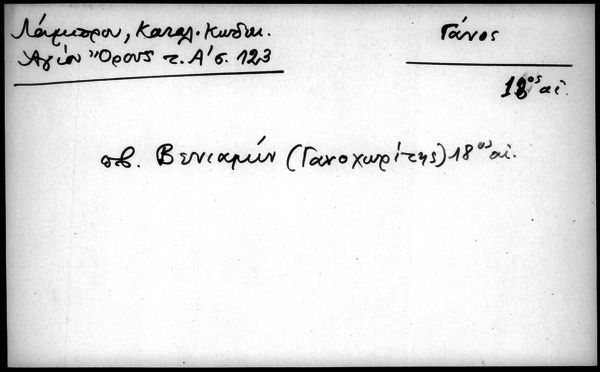 Λάμπρου, Καταλ. Κωδικ.
Αγίου Όρους τ. Α' σ. 123
Γάνος
18ος αι.
πβ. Βενιαμίν (Γανοχωρίτης) 18ος αι.